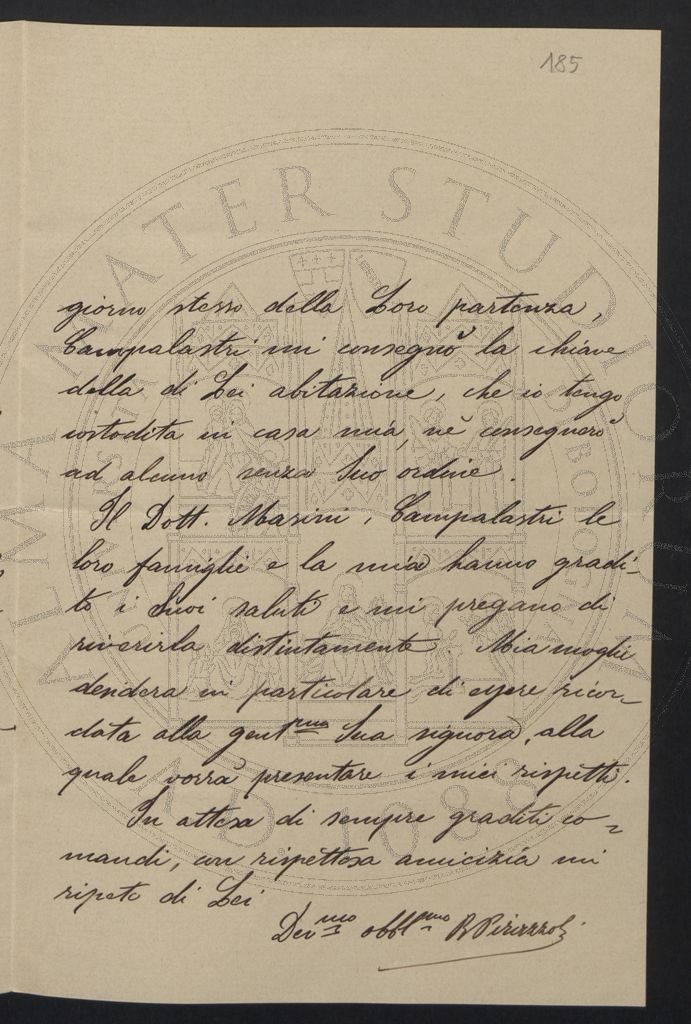 185
giorno stesso della Loro partenza,
Campalastri mi consegnò la chiave
della di Lei abitazione, che io tengo
costodita in casa mia, nè consegnerò
ad alcuno senza Suo ordine.
Il Dott. Masini, Campalastri le
loro famiglie e la mia hanno gradi-
to i Suoi saluti e mi pregano di
riverirla distintamente. Mia moglie
desidera in particolare di essere ricor-
data alla gentma Sua signora, alla
quale vorrà presentare i miei rispetti.
In attesa di sempre graditi co-
mandi, con rispettosa amicizia mi
ripeto di Lei
Devmo obblmo
ALMA MATER STUDIORUM
A.D. 1088